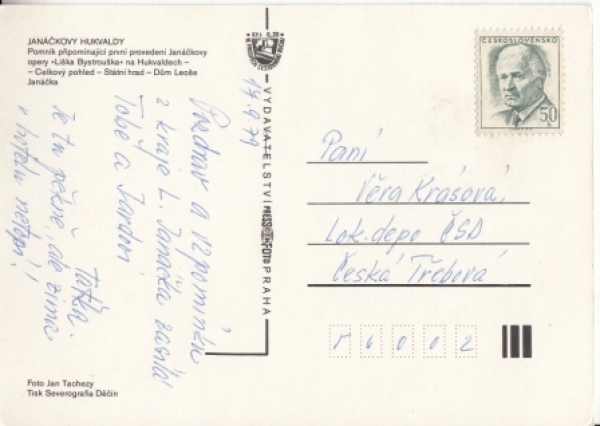 JANÁČKOVY HUKVALDY
Pomník připomínající první provedení Janáčkovy
opery »Liška Bystrouška« na Hukvaldech –
– Celkový pohled – Státní hrad – Dům Leoše
Janáčka
14. 9. 79
Pozdrav a vzpomínku
z kraje L. Janáčka zasílá
Tobě a Jardovi
Taťka.
Je tu pěkně, ale zima
v hotelu netopí!
VYDAVATELSTVÍ PRESSFOTO PRAHA
ČESKOSLOVENSKO
50
Paní
Věra Krásová,
Lok. depo ČSD
Česká Třebová
Foto Jan Tachezy
Tisk Severografia Děčín